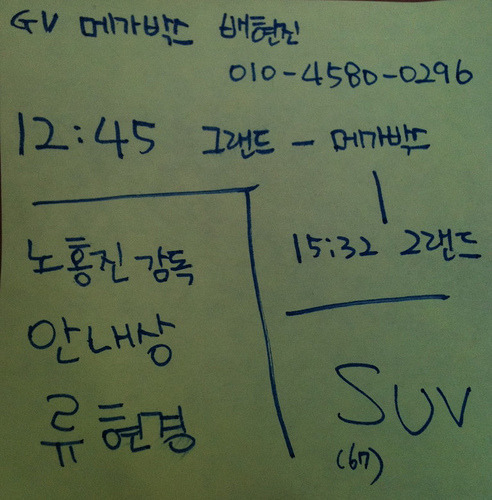 GV 메가박스 배현진
010-4580-0296
12:45 그랜드 - 메가박스
15:32 그랜드
노홍진 감독
안내상
류현경
SUV
(67)